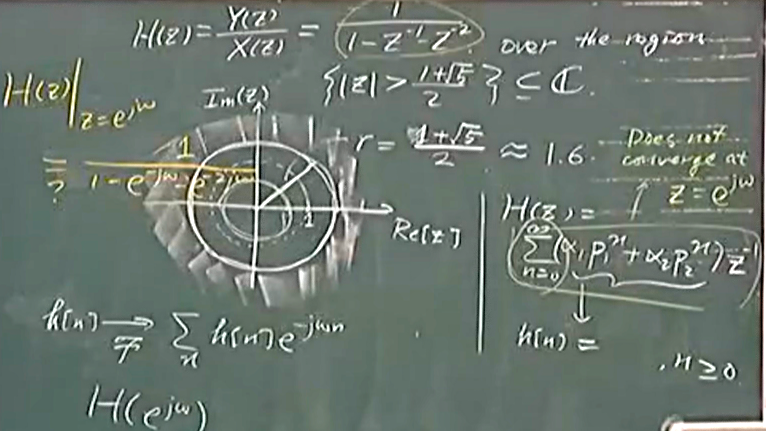 H(z) = Y(z)/X(z) = 1/(1 - z^-1 - z^-2) over the region
{|z| > (1+√5)/2 } ⊂ ℂ.
H(z)|z=e^jω
=? 1/(1 - e^-jω - e^-2jω)
Im(z)
r = (1+√5)/2 ≈ 1.6.
1
Re[z]
Does not
converge at
z = e^jω
H(z) =
∑n=0^∞ (α₁p₁^n + α₂p₂^n) z^-1
h[n] =
, n ≥ 0.
h[n] →F ∑n h[n]e^-jωn
H(e^jω)